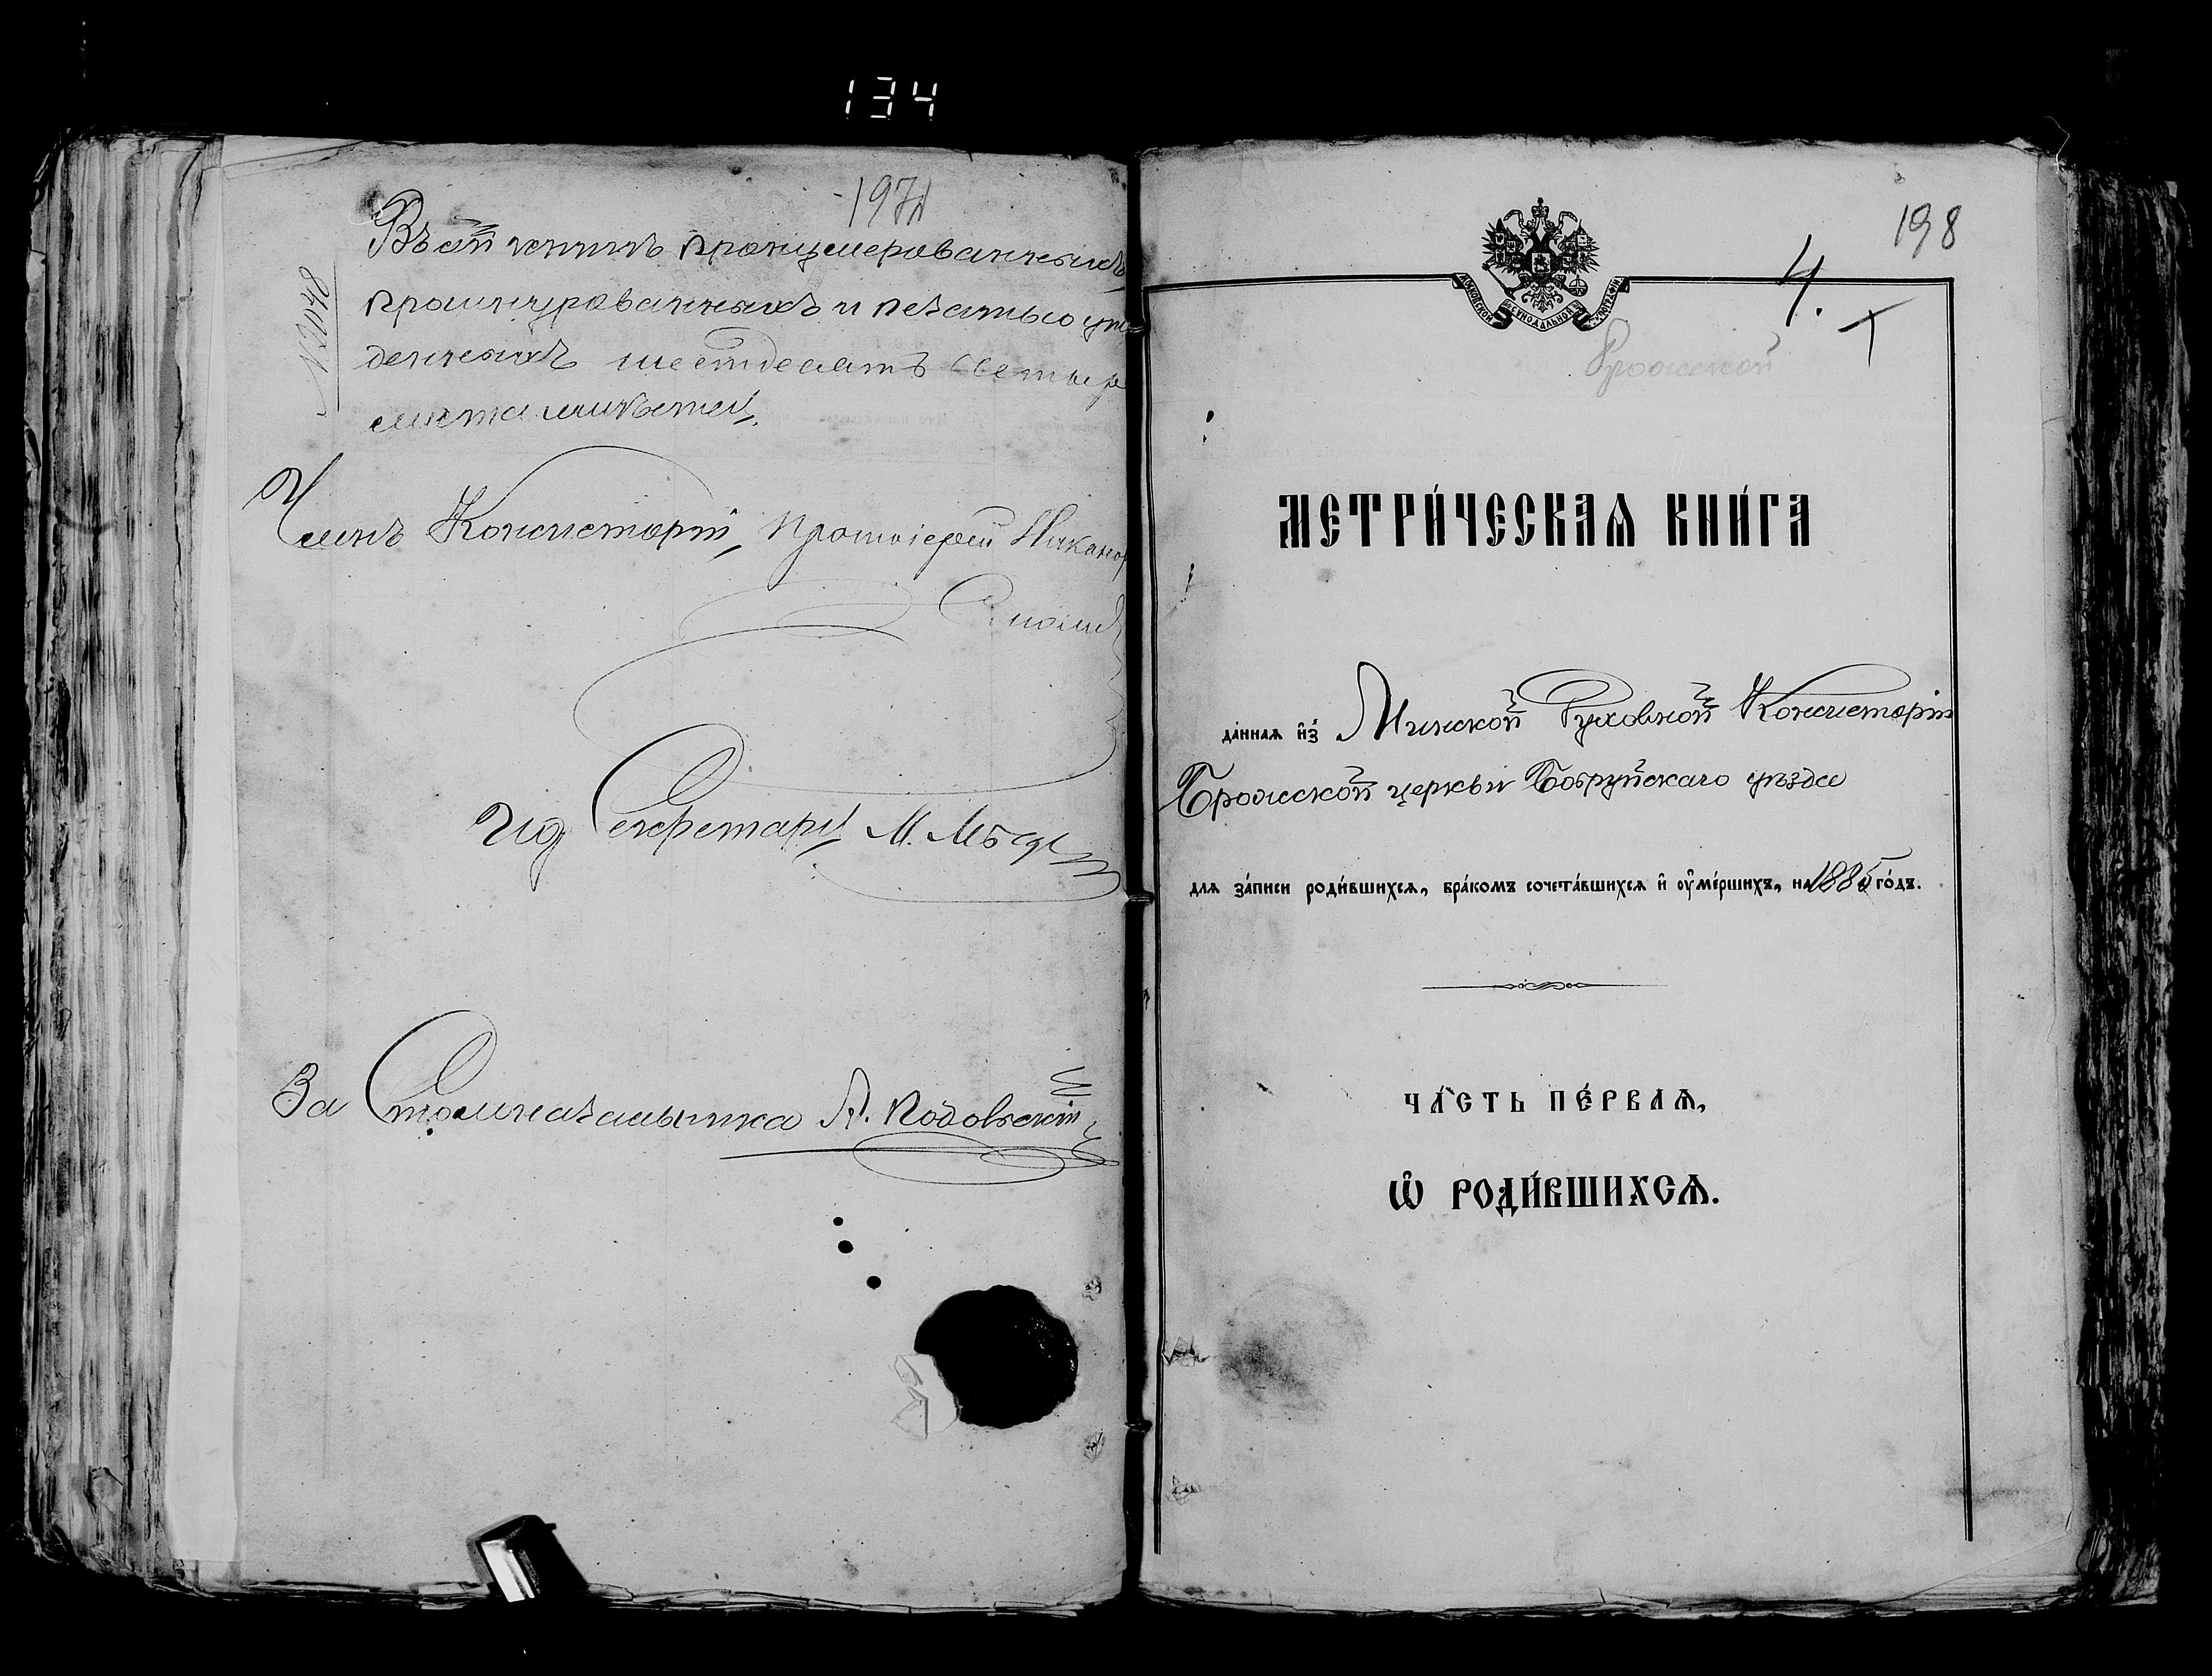 134
197
Въ сей книгѣ пронумерованныхъ
прошнурованныхъ и печатью утвер
денныхъ шестьдесятъ четыре
листа
№ 2048
Членъ Консисторіи, Протоіерей Никаноръ
Смолич
Секретарь М.
За Столоначальника
198
4.
МОСКОВСКОЙ СѴНОДАЛЬНОЙ ТИПОГРАФІИ
Брожской
МЕТРИ́ЧЕСКАѦ КНИ́ГА
да́ннаѧ и҆з̾ Минской Духовной Консисторіи
Брожской церкви Бобруйскаго уѣзда
длѧ за́писи роди́вшихсѧ, бра́комъ сочета́вшихсѧ и҆ ᲂу҆ме́ршихъ, на 1885 го́дъ.
ЧА́СТЬ ПЕ́РВАѦ,
Ѽ РОДИ́ВШИХСѦ.